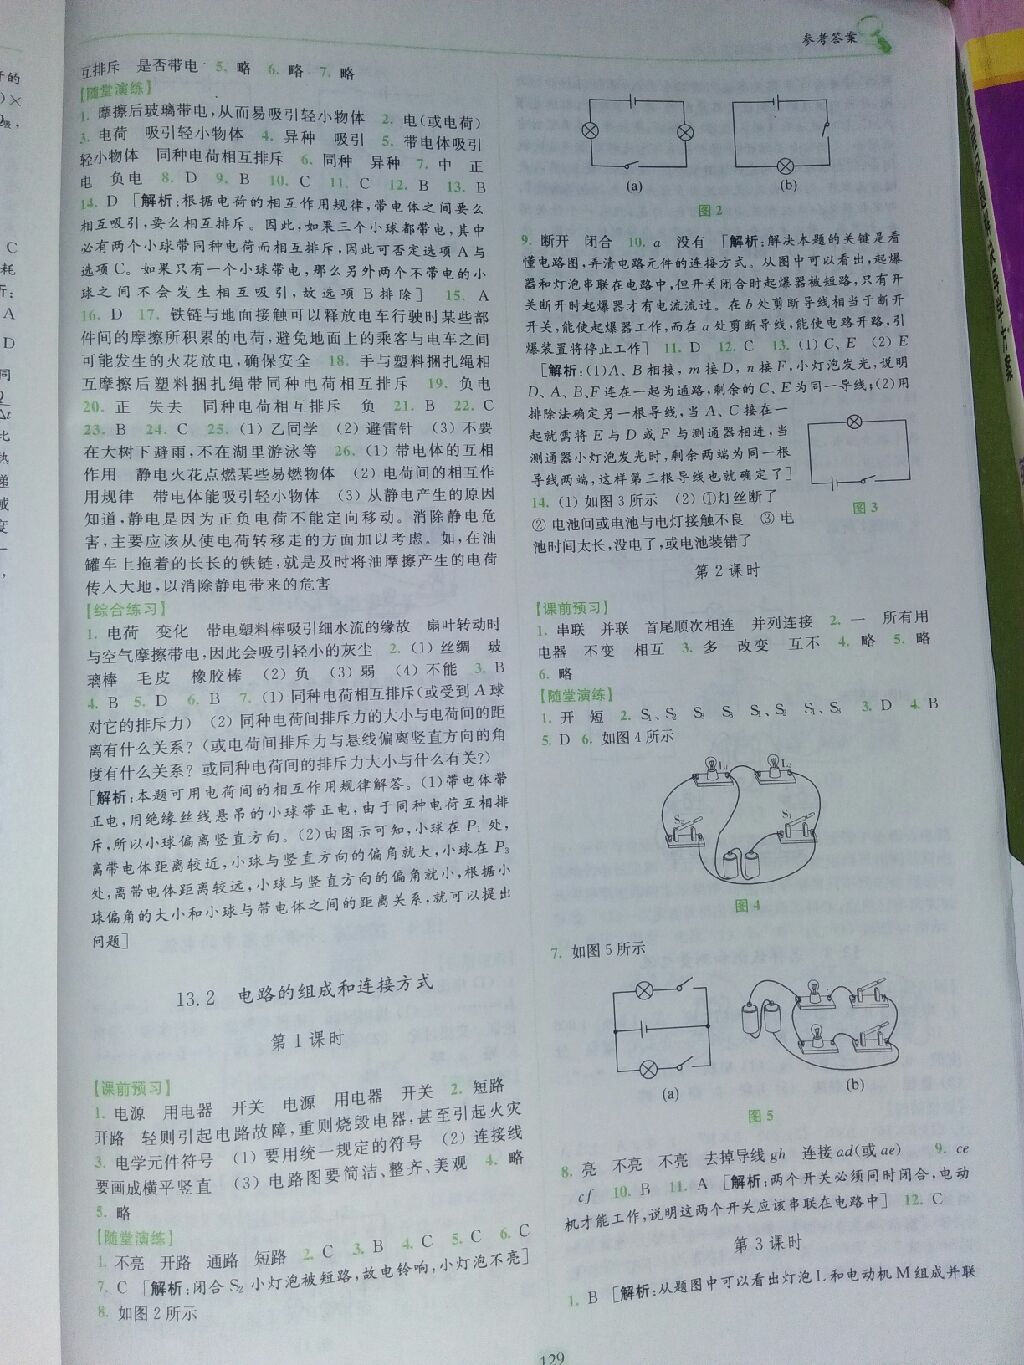 参考答案
互排斥 是否带电 5. 略 6. 略 7. 略
【随堂演练】
1. 摩擦后玻璃带电,从而易吸引轻小物体 2. 电(或电荷)
3. 电荷 吸引轻小物体 4. 异种 吸引 5. 带电体吸引
轻小物体 同种电荷相互排斥 6. 同种 异种 7. 中 正
电 负电 8. D 9. B 10. C 11. C 12. B 13. B
14. D [解析:根据电荷的相互作用规律,带电体之间要么
相互吸引,要么相互排斥。因此,如果三个小球都带电,其中
必有两个小球带同种电荷而相互排斥,因此可否定选项A与
选项C。如果只有一个小球带电,那么另外两个不带电的小
球之间不会发生相互吸引,故选项B排除] 15. A
16. D 17. 铁链与地面接触可以释放电车行驶时某些部
件间的摩擦所积累的电荷,避免地面上的乘客与电车之间
可能发生的火花放电,确保安全 18. 手与塑料捆扎绳相
互摩擦后塑料捆扎绳带同种电荷相互排斥 19. 负电
20. 正 失去 同种电荷相互排斥 负 21. B 22. C
23. B 24. C 25. (1) 乙同学 (2) 避雷针 (3) 不要
在大树下避雨,不在湖里游泳等 26. (1) 带电体的互相
作用 静电火花点燃某些易燃物体 (2) 电荷间的相互作
用规律 带电体能吸引轻小物体 (3) 从静电产生的原因
知道,静电是因为正负电荷不能定向移动。消除静电危
害,主要应该从使电荷转移走的方面加以考虑。如,在油
罐车上拖着的长长的铁链,就是及时将油摩擦产生的电荷
传入大地,以消除静电带来的危害
【综合练习】
1. 电荷 变化 带电塑料棒吸引细水流的缘故 扇叶转动时
与空气摩擦带电,因此会吸引轻小的灰尘 2. (1) 丝绸 玻
璃棒 毛皮 橡胶棒 (2) 负 (3) 弱 (4) 不能 3. B
4. B 5. D 6. B 7. (1) 同种电荷相互排斥(或受到A球
对它的排斥力) (2) 同种电荷间排斥力的大小与电荷间的距
离有什么关系?(或电荷间排斥力与悬线偏离竖直方向的角
度有什么关系?或同种电荷间的排斥力大小与什么有关?)
[解析:本题可用电荷间的相互作用规律解答。(1)带电体带
正电,用绝缘丝线悬吊的小球带正电,由于同种电荷互相排
斥,所以小球偏离竖直方向。(2)由图示可知,小球在P₁处,
离带电体距离较近,小球与竖直方向的偏角就大,小球在P₃
处,离带电体距离较远,小球与竖直方向的偏角就小,根据小
球偏角的大小和小球与带电体之间的距离关系,就可以提出
问题]
13.2 电路的组成和连接方式
第1课时
【课前预习】
1. 电源 用电器 开关 电源 用电器 开关 2. 短路
开路 轻则引起电路故障,重则烧毁电器,甚至引起火灾
3. 电学元件符号 (1) 要用统一规定的符号 (2) 连接线
要画成横平竖直 (3) 电路图要简洁、整齐、美观 4. 略
5. 略
【随堂演练】
1. 不亮 开路 通路 短路 2. C 3. B 4. C 5. C 6. C
7. C [解析:闭合S₂小灯泡被短路,故电铃响,小灯泡不亮]
8. 如图2所示
(a) (b)
图2
9. 断开 闭合 10. a 没有 [解析:解决本题的关键是看
懂电路图,弄清电路元件的连接方式。从图中可以看出,起爆
器和灯泡串联在电路中,但开关闭合时起爆器被短路,只有开
关断开时起爆器才有电流流过。在b处剪断导线相当于断开
开关,能使起爆器工作,而在a处剪断导线,能使电路开路,引
爆装置将停止工作] 11. D 12. C 13. (1) C、E (2) E
[解析:(1)A、B相接,m接D,n接F,小灯泡发光,说明
D、A、B、F连在一起为通路,剩余的C、E为同一导线;(2)用
排除法确定另一根导线,当A、C接在一
起就需将E与D或F与测通器相连,当
测通器小灯泡发光时,剩余两端为同一根
导线两端,这样第三根导线也就确定了]
14. (1) 如图3所示 (2) ①灯丝断了
② 电池间或电池与电灯接触不良 ③ 电
池时间太长,没电了,或电池装错了
图3
第2课时
【课前预习】
1. 串联 并联 首尾顺次相连 并列连接 2. 一 所有用
电器 不变 相互 3. 多 改变 互不 4. 略 5. 略
6. 略
【随堂演练】
1. 开 短 2. S₁、S₂ 3. D 4. B
5. D 6. 如图4所示
图4
7. 如图5所示
(a) (b)
图5
8. 亮 不亮 不亮 去掉导线gh 连接ad(或ae) 9. ce
cf 10. B 11. A [解析:两个开关必须同时闭合,电动
机才能工作,说明这两个开关应该串联在电路中] 12. C
第3课时
1. B [解析:从题图中可以看出灯泡L和电动机M组成并联
129